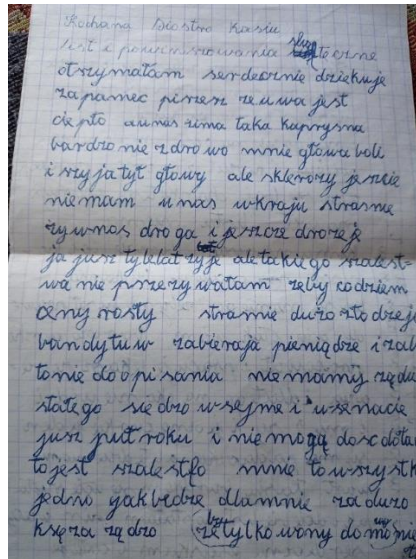 Kochana Siostro Kasiu
List i powinszowania otrzymałam serdecznie dziekuje
za pamec piszesz ze u wa jest
ciepło a u nas zima taka kaprysna
bardzo nie zdrowo mnie głowa boli
i szyja tył głowy ale sklerozy jescie
niemam u nas w kraju strasne
zywnos droga i jeszcze drozeje
ja jusz tyle lat zyje ale takiego szalest=
wa nie przezywałam zeby codziem
ceny rosły strasnie duzo złodzeji
bandytuw zabieraja pieniądze i zab
to nie do opisania niemamy rządu
stałego siedzo w sejme i w senacie
jusz puł roku i niemogą dosc do ła
to jest szalestfo mnie to wszystk
jedno jak bedze dla mnie za duzo
ksęza rządzo zeby tylko wony do